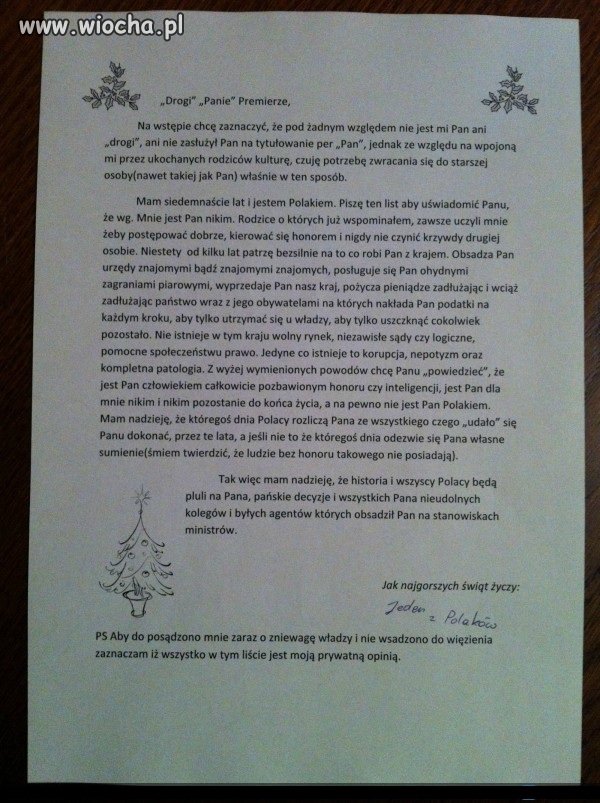 www.wiocha.pl
„Drogi” „Panie” Premierze,
Na wstępie chcę zaznaczyć, że pod żadnym względem nie jest mi Pan ani
„drogi”, ani nie zasłużył Pan na tytułowanie per „Pan”, jednak ze względu na wpojoną
mi przez ukochanych rodziców kulturę, czuję potrzebę zwracania się do starszej
osoby(nawet takiej jak Pan) właśnie w ten sposób.
Mam siedemnaście lat i jestem Polakiem. Piszę ten list aby uświadomić Panu,
że wg. Mnie jest Pan nikim. Rodzice o których już wspominałem, zawsze uczyli mnie
żeby postępować dobrze, kierować się honorem i nigdy nie czynić krzywdy drugiej
osobie. Niestety od kilku lat patrzę bezsilnie na to co robi Pan z krajem. Obsadza Pan
urzędy znajomymi bądź znajomymi znajomych, posługuje się Pan ohydnymi
zagraniami piarowymi, wyprzedaje Pan nasz kraj, pożycza pieniądze zadłużając i wciąż
zadłużając państwo wraz z jego obywatelami na których nakłada Pan podatki na
każdym kroku, aby tylko utrzymać się u władzy, aby tylko uszczknąć cokolwiek
pozostało. Nie istnieje w tym kraju wolny rynek, niezawisłe sądy czy logiczne,
pomocne społeczeństwu prawo. Jedyne co istnieje to korupcja, nepotyzm oraz
kompletna patologia. Z wyżej wymienionych powodów chcę Panu „powiedzieć”, że
jest Pan człowiekiem całkowicie pozbawionym honoru czy inteligencji, jest Pan dla
mnie nikim i nikim pozostanie do końca życia, a na pewno nie jest Pan Polakiem.
Mam nadzieję, że któregoś dnia Polacy rozliczą Pana ze wszystkiego czego „udało” się
Panu dokonać, przez te lata, a jeśli nie to że któregoś dnia odezwie się Pana własne
sumienie(śmiem twierdzić, że ludzie bez honoru takowego nie posiadają).
Tak więc mam nadzieję, że historia i wszyscy Polacy będą
pluli na Pana, pańskie decyzje i wszystkich Pana nieudolnych
kolegów i byłych agentów których obsadził Pan na stanowiskach
ministrów.
Jak najgorszych świąt życzy:
Jeden
z Polaków
PS Aby do posądzono mnie zaraz o zniewagę władzy i nie wsadzono do więzienia
zaznaczam iż wszystko w tym liście jest moją prywatną opinią.